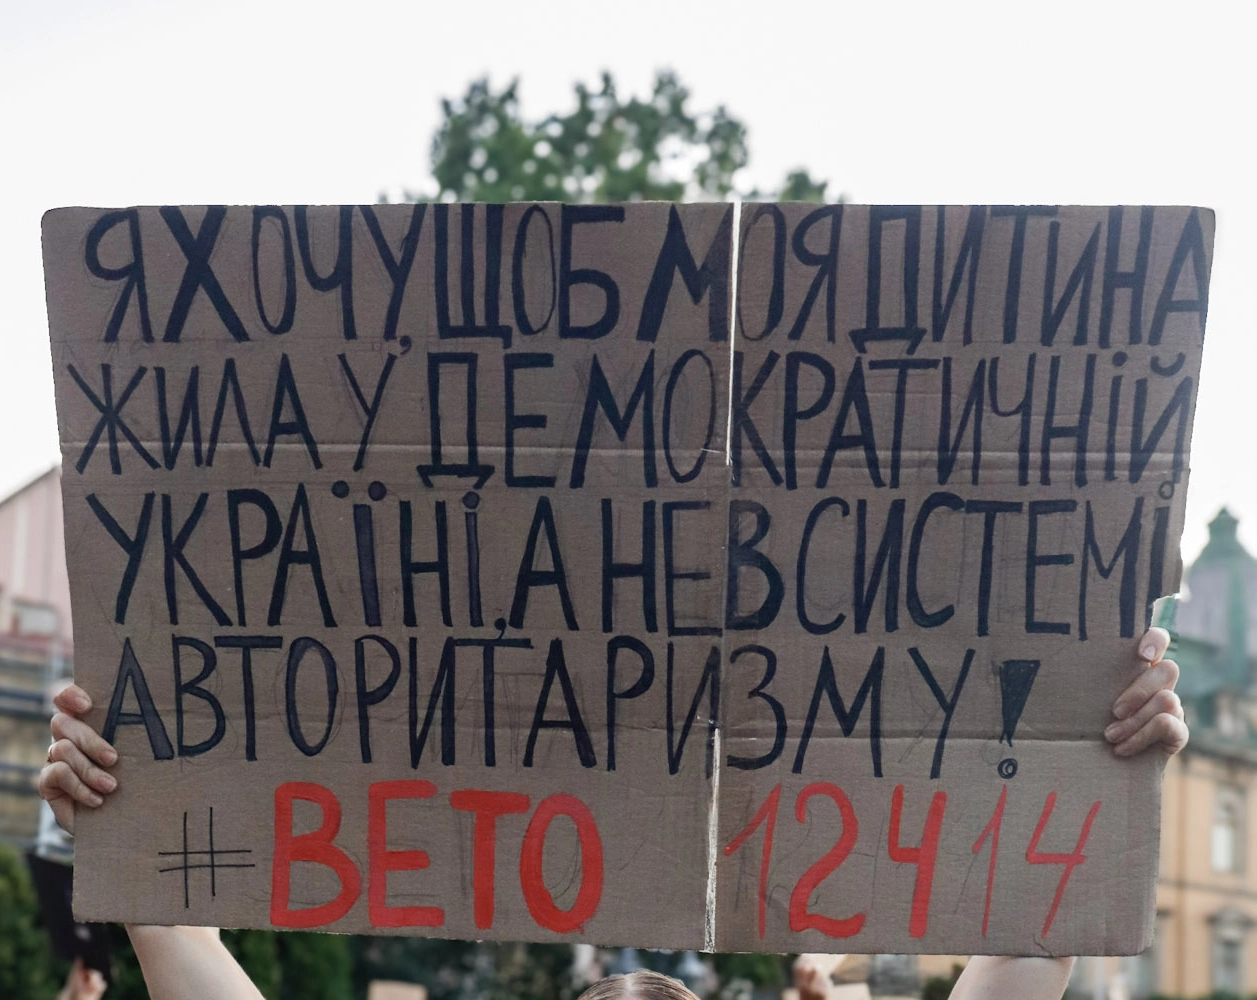 Я ХОЧУ, ЩОБ МОЯ ДИТИНА
ЖИЛА У ДЕМОКРАТИЧНІЙ
УКРАЇНІ, А НЕ В СИСТЕМІ
АВТОРИТАРИЗМУ!
# ВЕТО 12414